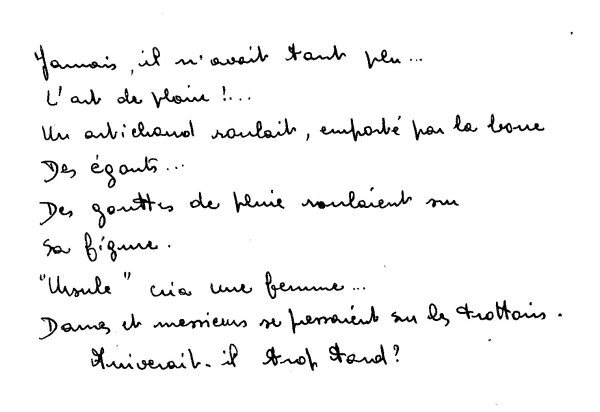 Jamais, il n'avait tant plu...
L'art de plaire !...
Un artichaud roulait, emporté par la boue
Des égouts...
Des gouttes de pluie roulaient sur
sa figure.
"Ursule" cria une femme...
Dames et messieurs se pressaient sur les trottoirs.
Arriverait-il trop tard ?